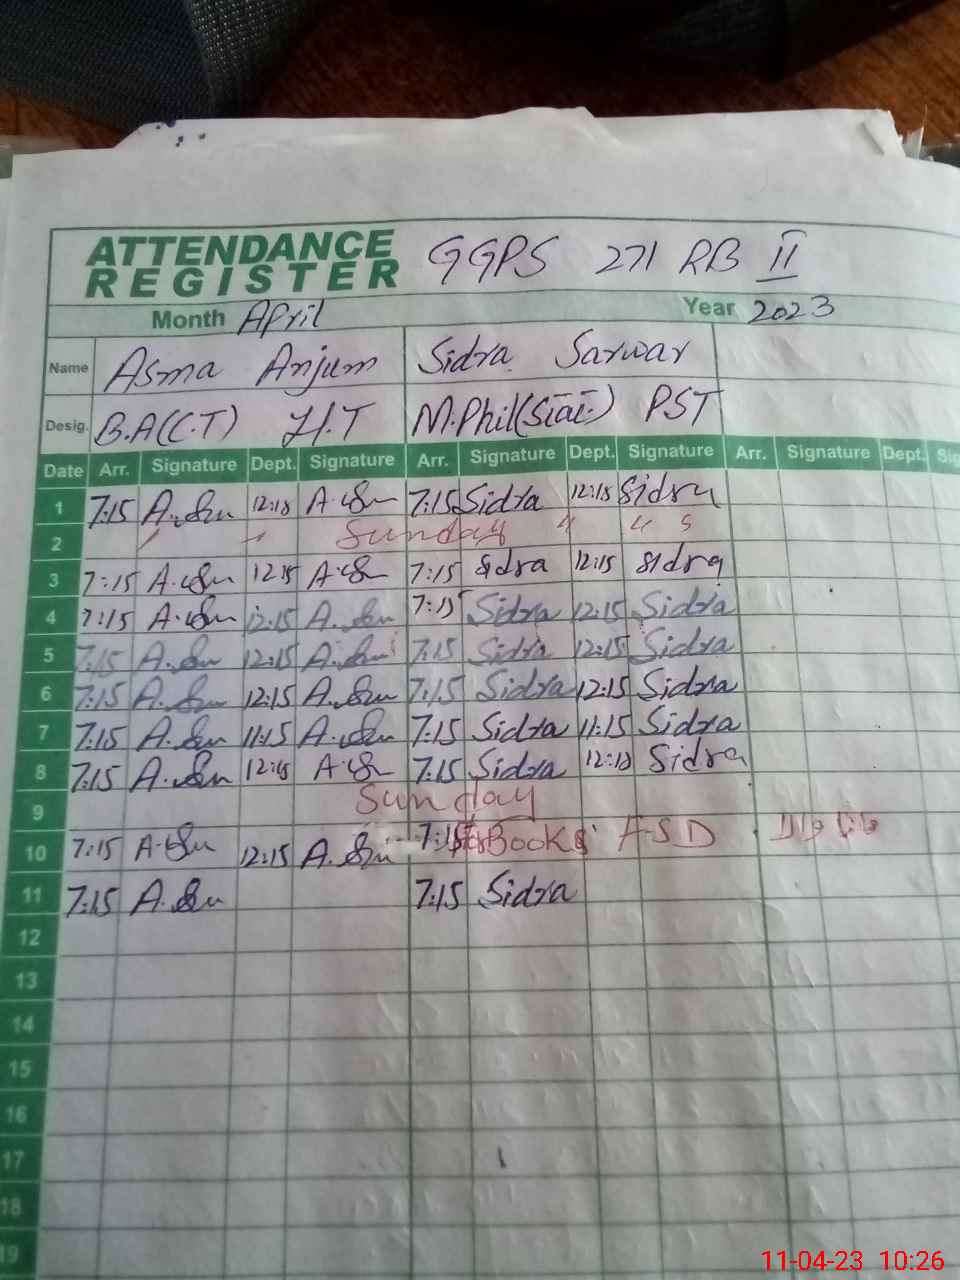 ATTENDANCE REGISTER GGPS 271 RB II
Month April Year 2023
Name Asma Anjum Sidra Sarwar
Desig. B.A(C.T) H.T M.Phil( PST
Date Arr. Signature Dept. Signature Arr. Signature Dept. Signature Arr. Signature Dept. Sig
1 7:15 12:18 7:15 Sidra 12:18 Sidra
2 Sunday
3 7:15 12:15 7:15 Sidra 12:15 Sidra
4 7:15 12:15 7:15 Sidra 12:15 Sidra
5 7:15 12:15 7:15 Sidra 12:15 Sidra
6 7:15 12:15 7:15 Sidra 12:15 Sidra
7 7:15 11:15 7:15 Sidra 11:15 Sidra
8 7:15 12:18 7:15 Sidra 12:18 Sidra
9 Sunday
10 7:15 12:15 7:15 Books FSD
11 7:15 7:15 Sidra
12
13
14
15
16
17
18
19
11-04-23 10:26